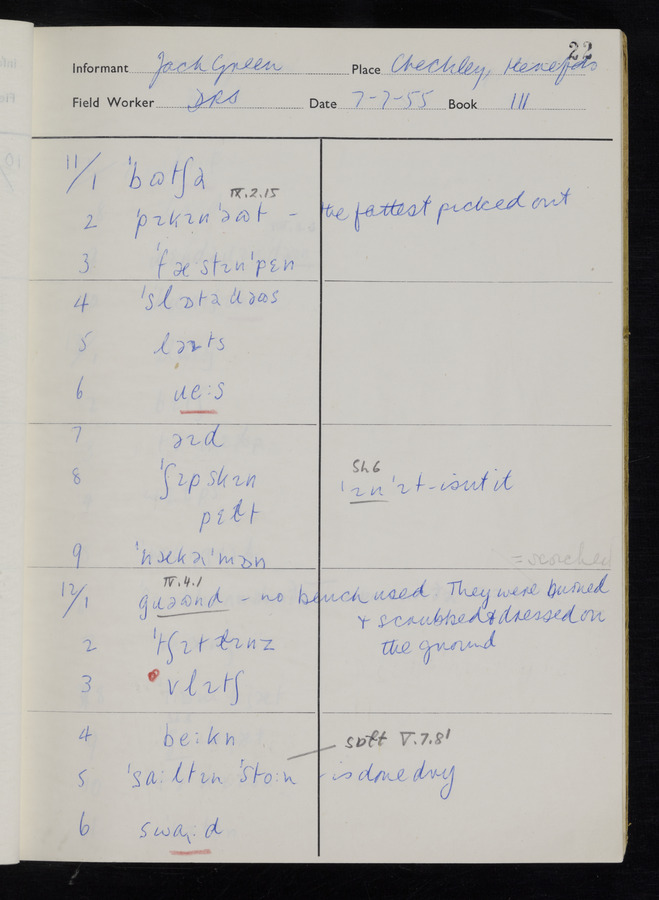 22
Informant Jack Green Place Checkley, Herefords
Field Worker DRS Date 7-7-55 Book III
11/1 ˈbʊtʃə
IX.2.15
2 ˈpɪkɪnˈəʊt – the fattest picked out
3 ˈfæstɪnˈpɛn
4 ˈslɔtəɹəʊs
5 ləɪts
6 ɹɛːs
7 əɪd
8 ˈʃɪpskɪn
pɛɫt
Sh6
ˈɪnˈɪt – isn't it
9 ˈnækəˈmən
= scorched
IV.4.1
12/1 gɹəʊnd – no bench used. They were burned
+ scrubbed & dressed on
the ground
2 ˈtʃɪtɫɪnz
3 vlɪtʃ
4 beːkn
sɒɫt V.7.8'
5 ˈsaːltɪnˈstoːn – is done dry
6 swaːd